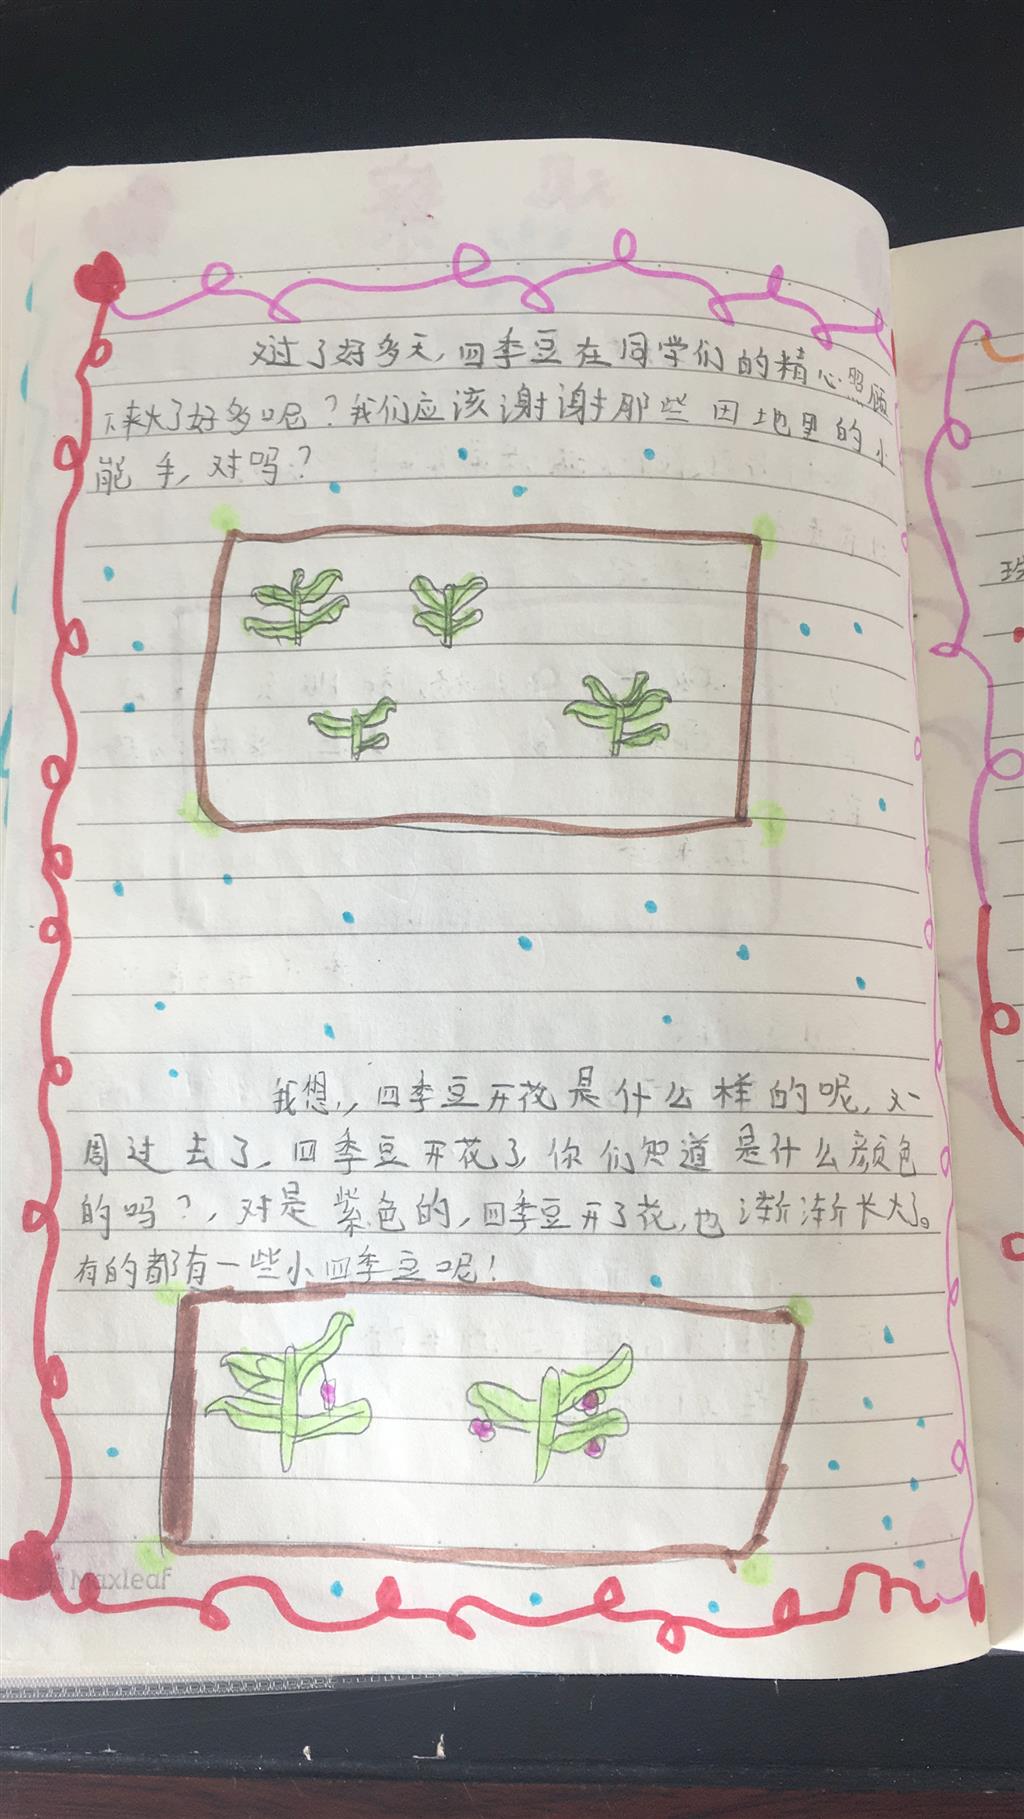 又过了好多天,四季豆在同学们的精心照顾
下来大了好多呢?我们应该谢谢那些田地里的小
能手,对吗?
我想,,四季豆开花是什么样的呢,又一
周过去了,四季豆开花了,你们知道是什么颜色
的吗?,对是紫色的,四季豆开了花,也渐渐长大了。
有的都有一些小四季豆呢!
Maxleaf